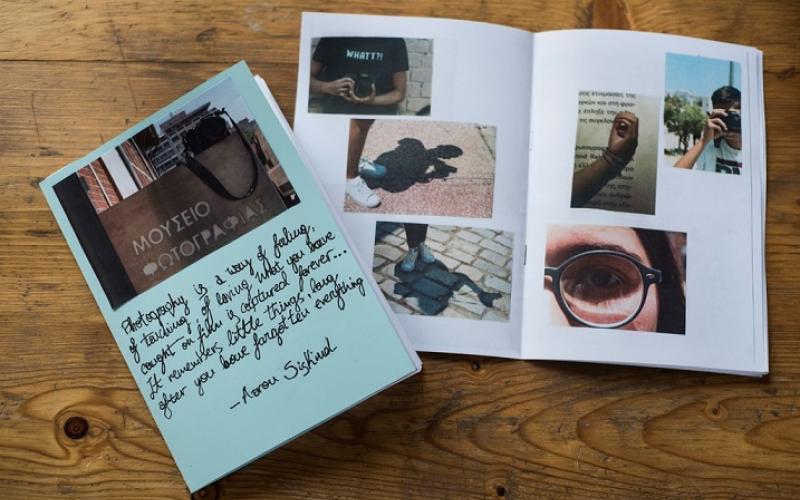 ΜΟΥΣΕΙΟ
ΦΩΤΟΓΡΑΦΙΑΣ
Photography is a way of feeling,
of touching, of loving. What you have
caught on film is captured forever...
It remembers little things, long
after you have forgotten everything
–Aaron Siskind
WHATT?!
ετοιμασίες της
και στη
της
τις